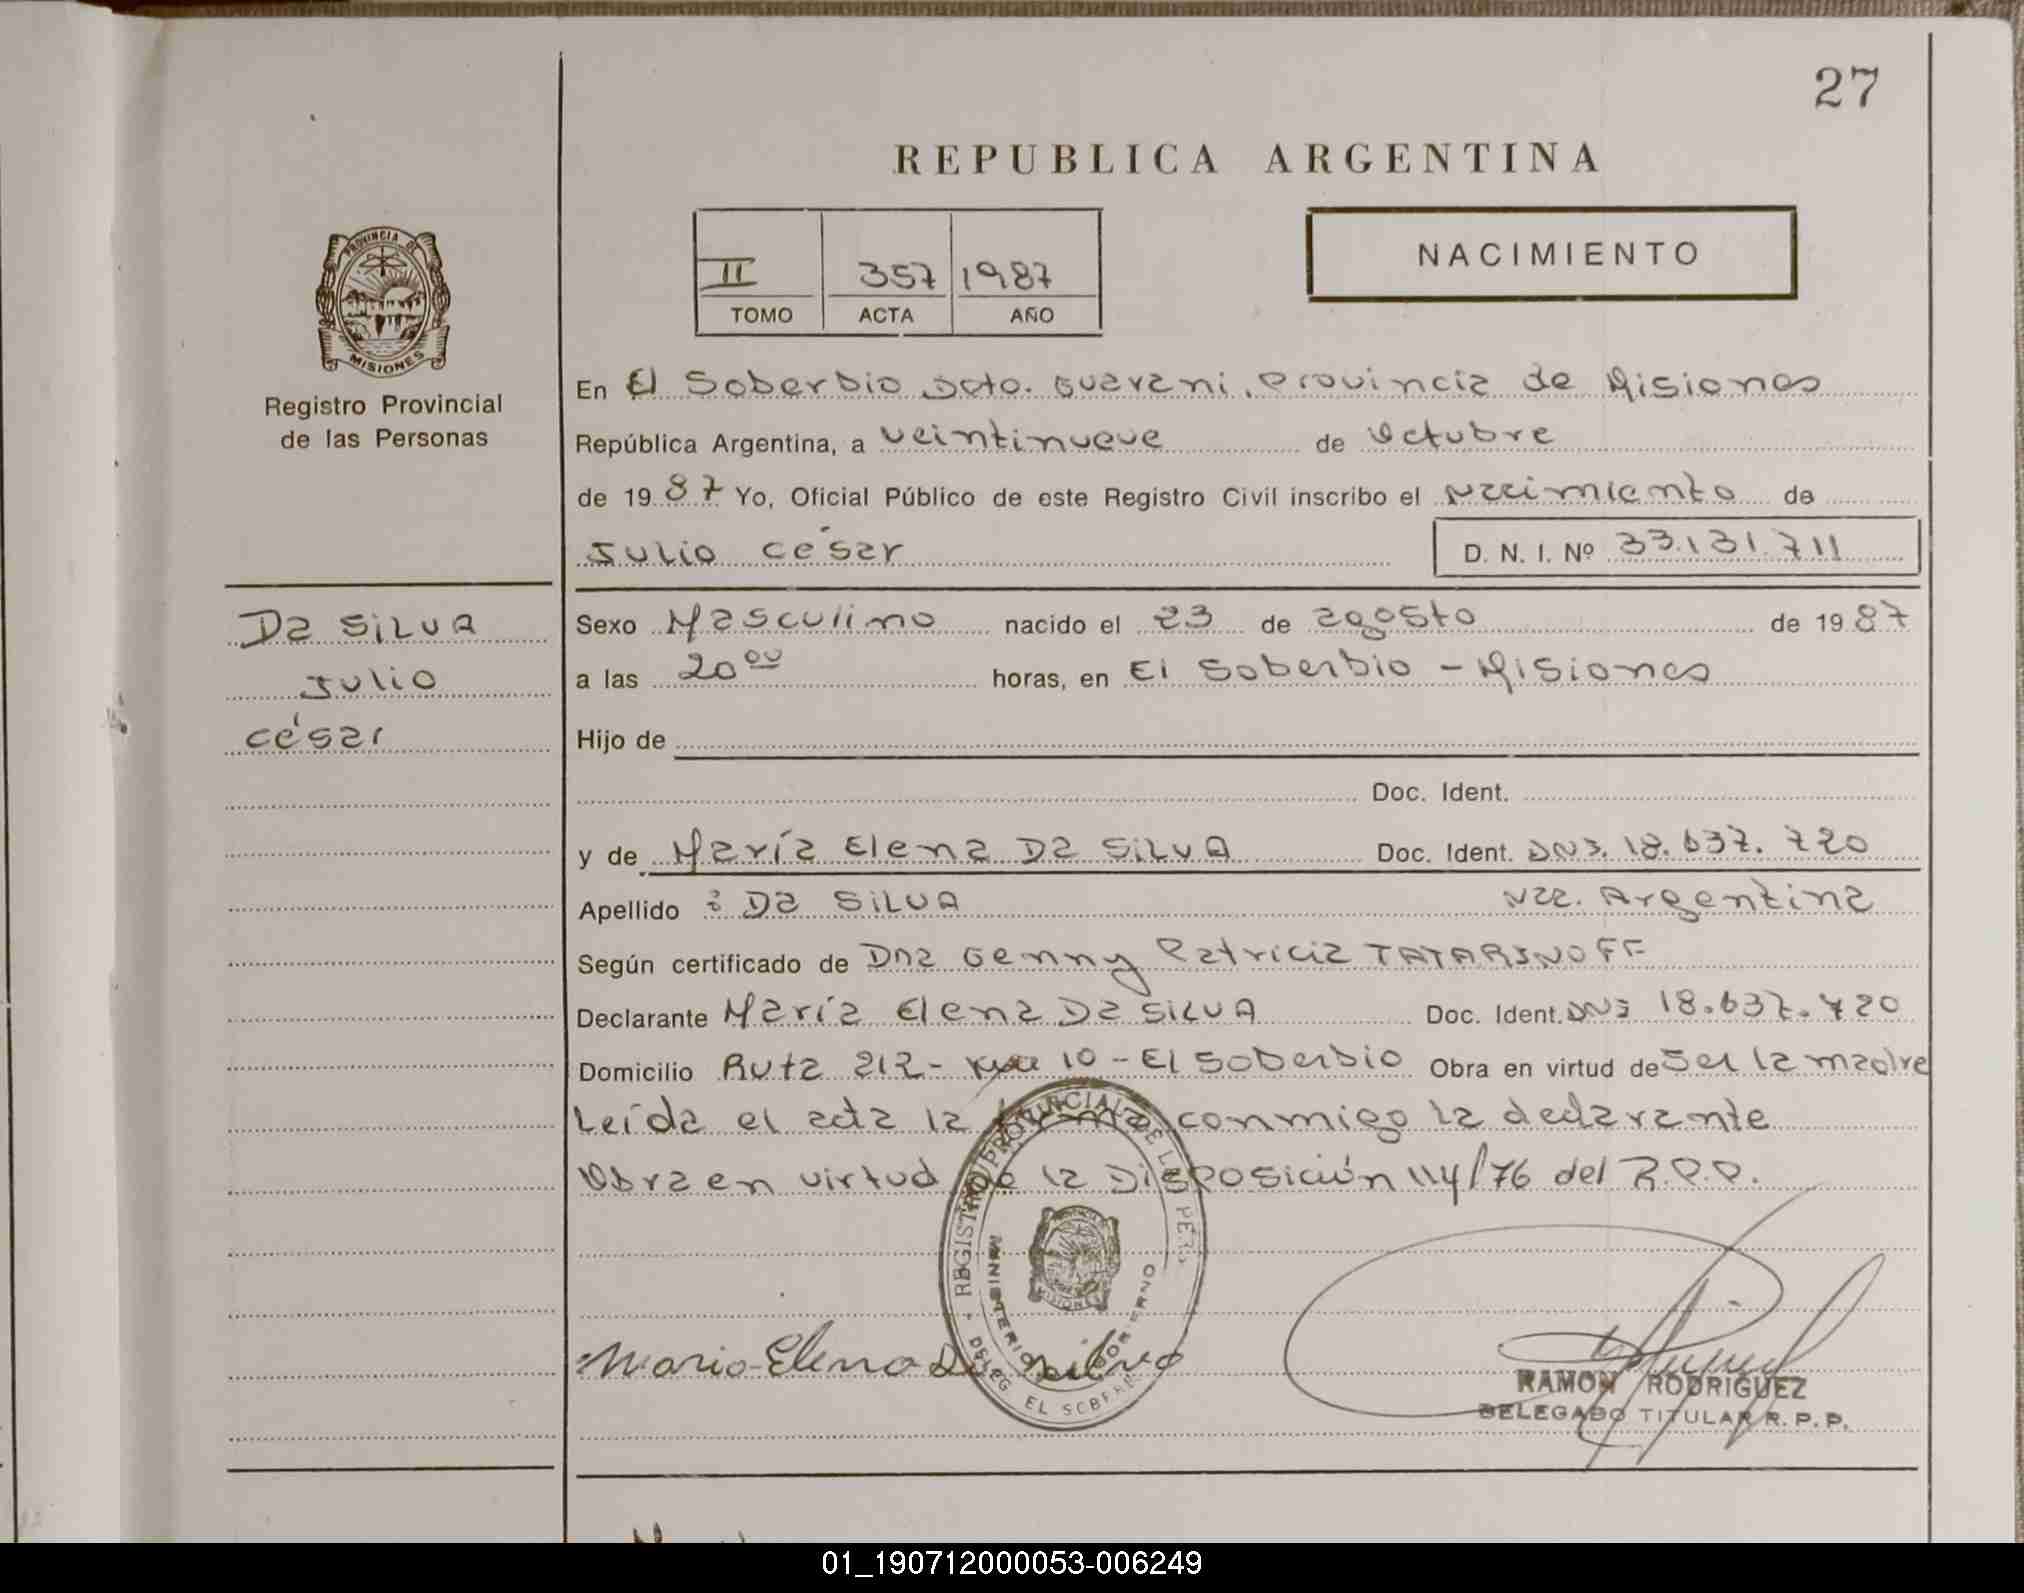 27
REPUBLICA ARGENTINA
II 357 1987
TOMO ACTA AÑO
NACIMIENTO
PROVINCIA DE
MISIONES
Registro Provincial
de las Personas
Da SiLVA
Julio
César
En El Soberbio Dcto. Guarani, Provincia de Misiones
República Argentina, a veintinueve de Octubre
de 1987 Yo, Oficial Público de este Registro Civil inscribo el Nacimiento de
Julio César D. N. I. Nº 33.131.711
Sexo Masculino nacido el 23 de agosto de 1987
a las 20 00 horas, en El Soberbio - Misiones
Hijo de
Doc. Ident.
y de María Elena Da SiLVA Doc. Ident. DNI. 18.637.720
Apellido : Da SiLVA Nac. Argentina
Según certificado de Dna Genny Patricia TATARINOFF
Declarante María Elena Da SiLVA Doc. Ident. DNI 18.637.720
Domicilio Ruta 212 - Km 10 - El Soberbio Obra en virtud de Ser la madre
Leída el acta la firma conmigo la declarante
Obra en virtud de la Disposición 114/76 del R.P.P.
REGISTRO PROVINCIAL DE LAS PERS
MINISTERIO GOBIERNO
DELEG EL SOBERB
Maria Elena Da silva
RAMON RODRIGUEZ
DELEGADO TITULAR R. P. P.
01_190712000053-006249